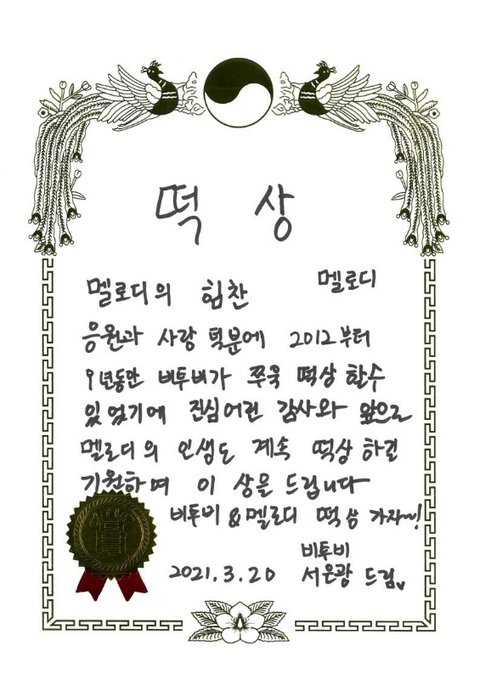 떡 상
멜로디
멜로디의 힘찬
응원과 사랑 덕분에 2012부터
9년동안 비투비가 쭈욱 떡상 할수
있었기에 진심어린 감사와 앞으로
멜로디의 인생도 계속 떡상 하길
기원하며 이 상을 드립니다
비투비 & 멜로디 떡상 가자~!
비투비
2021.3.20 서은광 드림